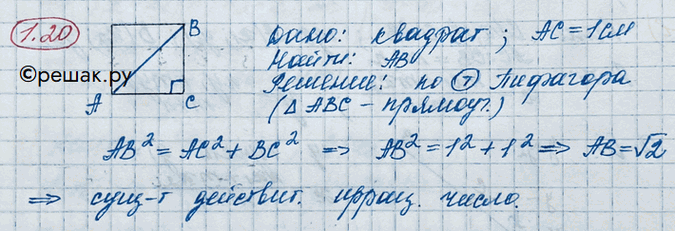 1.20
B
Дано: квадрат ; AC = 1см
Найти: AB
©решак.ру
Решение: по Т Пифагора
A
C
(△ ABC – прямоуг.)
AB² = AC² + BC² ⇒ AB² = 1² + 1² ⇒ AB = √2
⇒ сущ-т действит. иррац. число.